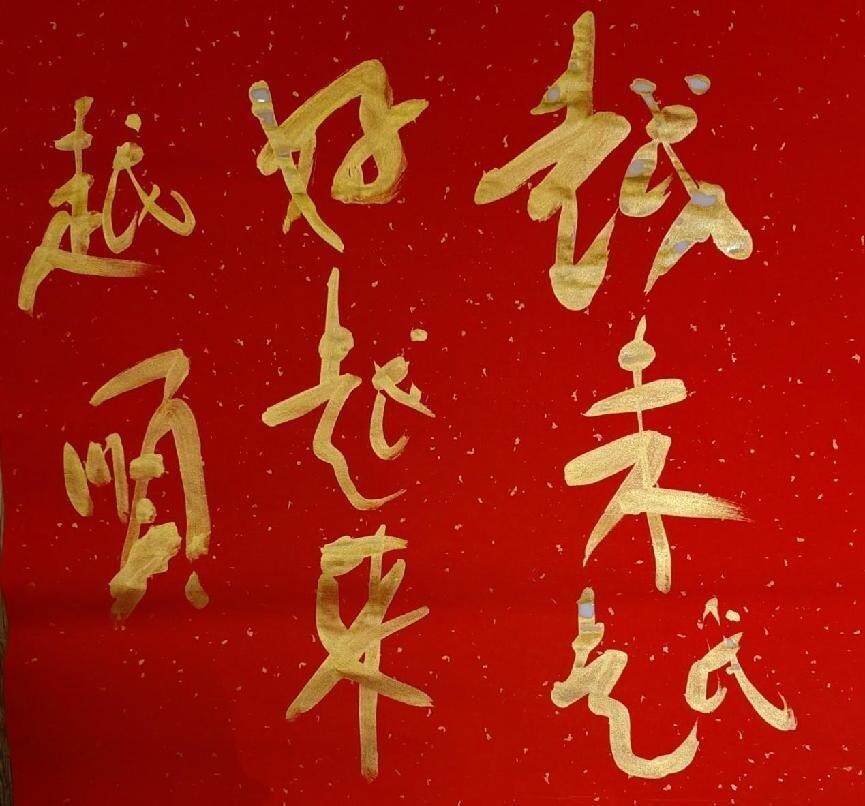 越来越
好越来
越順